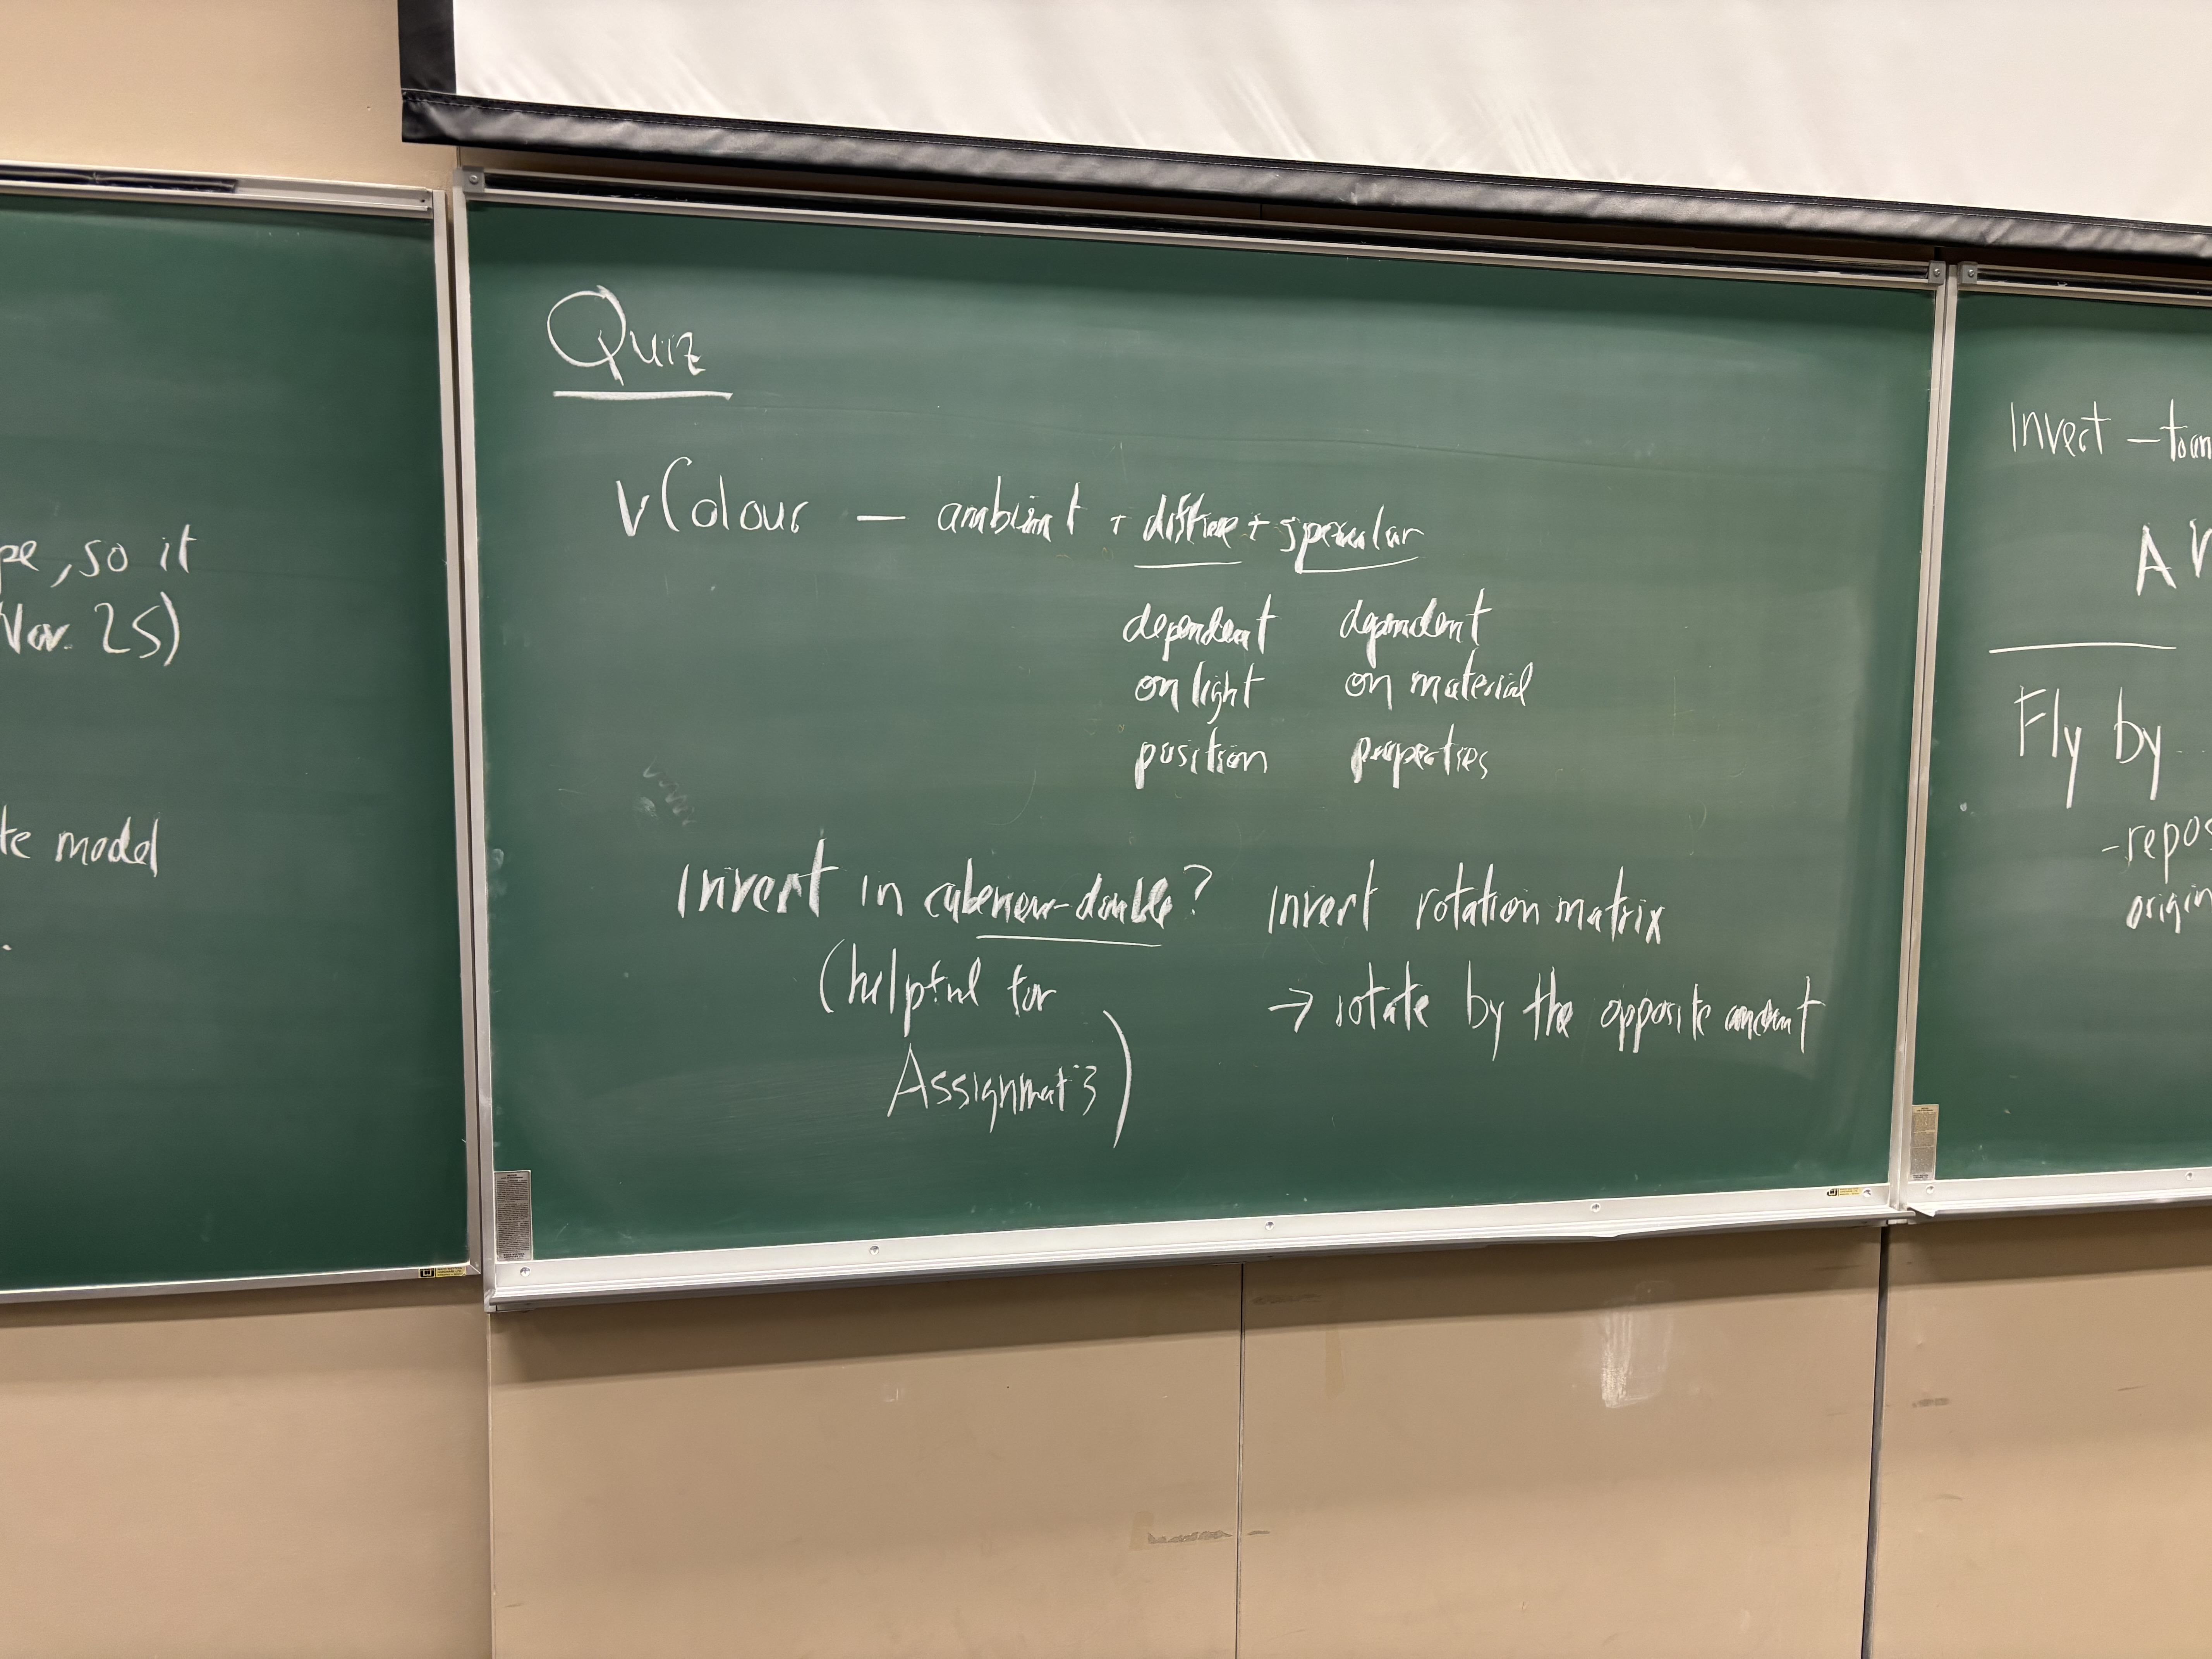 pe, so it
Nov. 25)
te model
Quiz
vColour — ambient + diffuse + specular
dependent dependent
on light on material
position properties
Invert in cubenew-double? Invert rotation matrix
(helpful for → rotate by the opposite amount
Assignment 3)
Invert –
A
Fly by
- repos
origin